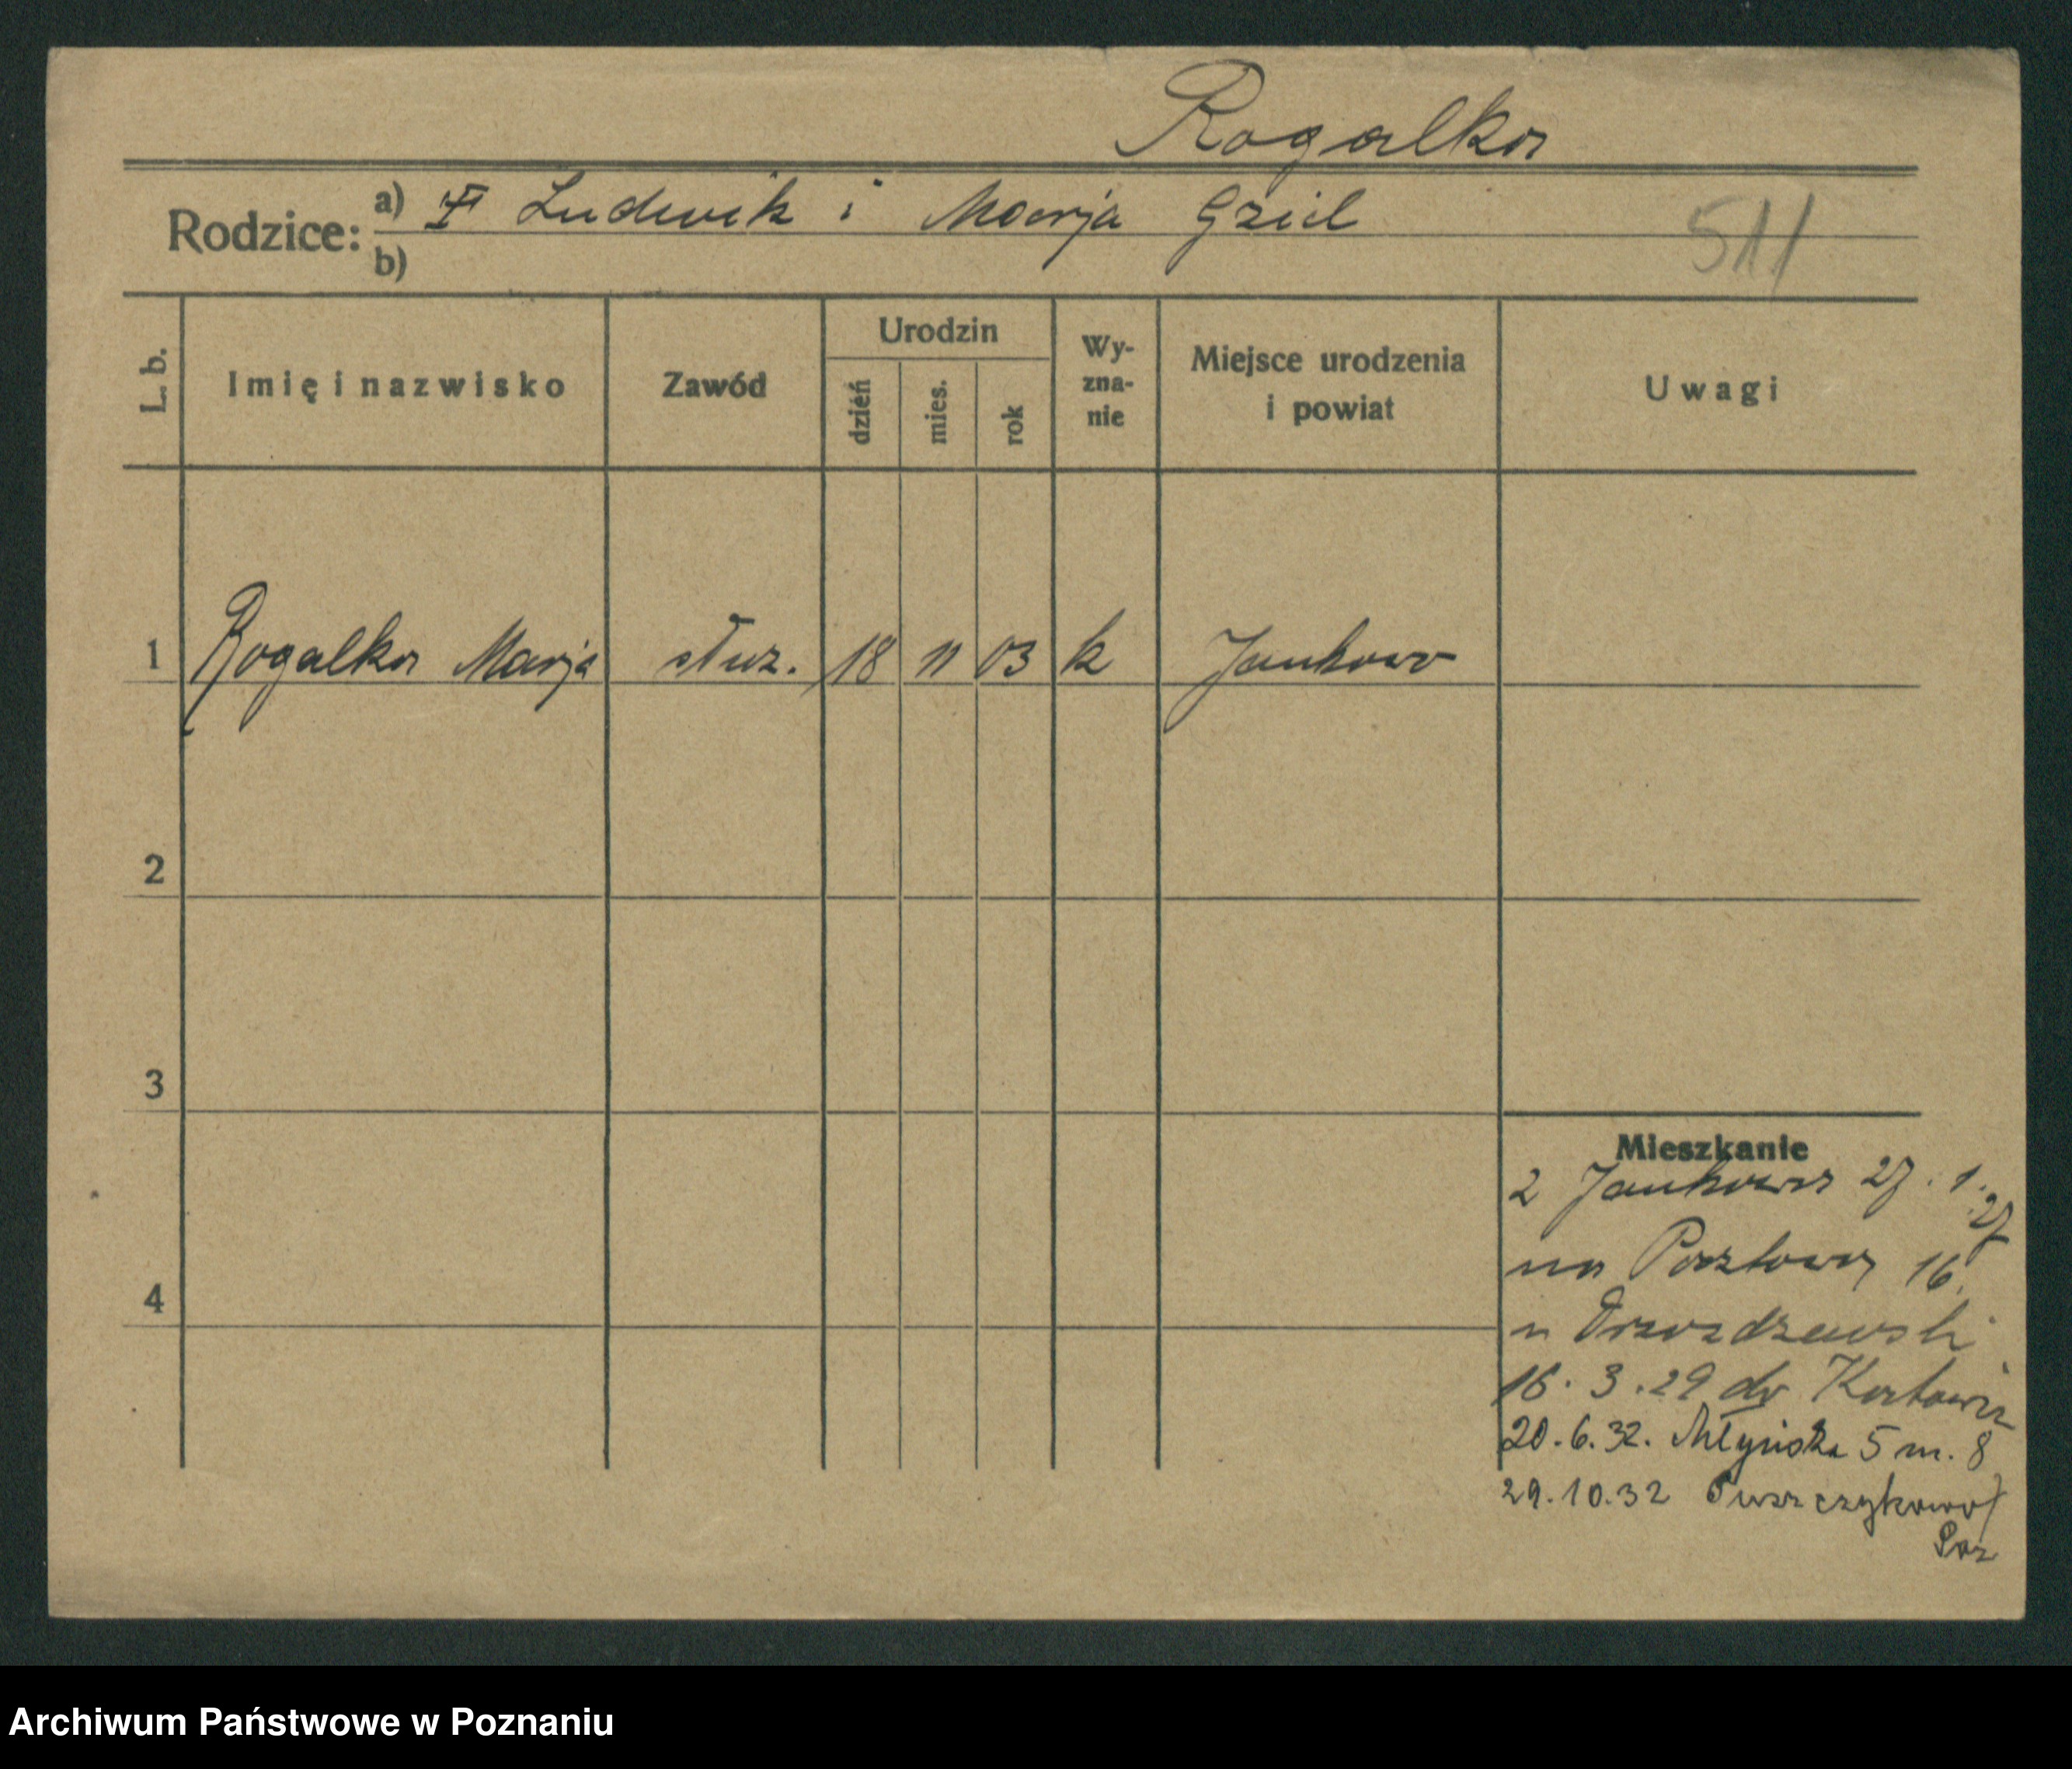 Rogalka
Rodzice: a) Ludwik i Marja Gzil
511
b)
L. b.
Imię i nazwisko
Zawód
Urodzin
dzień
mies.
rok
Wy-
zna-
nie
Miejsce urodzenia
i powiat
Uwagi
1 Rogalka Marja służ. 18 11 03 k Jankowo
2
3
4
Mieszkanie
z Jankowa 27.1.27
na Pocztową 16.
u Drzozdzewski
16.3.29 do
20.6.32. Młyńska 5 m. 8
29.10.32 Puszczykowo/
Poz
Archiwum Państwowe w Poznaniu